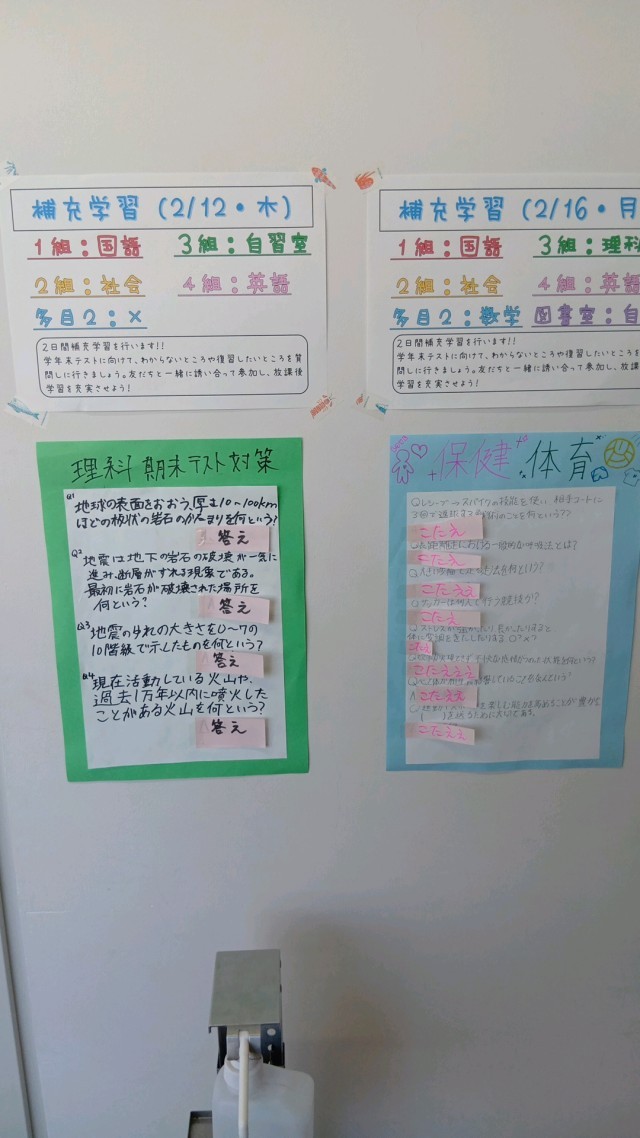 補充学習（2/12・木）
1組：国語 3組：自習室
2組：社会 4組：英語
多目2：×
2日間補充学習を行います!!
学年末テストに向けて、わからないところや復習したいところを質
問しに行きましょう。友だちと一緒に誘い合って参加し、放課後
学習を充実させよう！
補充学習（2/16・月
1組：国語 3組：理科
2組：社会 4組：英語
多目2：数学 図書室：自
2日間補充学習を行います!!
学年末テストに向けて、わからないところや復習したいところを
問しに行きましょう。友だちと一緒に誘い合って参加し、放課
学習を充実させよう！
理科 期末テスト対策
Q1
地球の表面をおおう、厚さ10～100km
ほどの板状の岩石のかたまりを何という？
答え
Q2
地震は地下の岩石の破壊が一気に
進み、断層がずれる現象である。
最初に岩石が破壊された場所を
何という？
答え
Q3
地震のゆれの大きさを0～7の
10階級で示したものを何という？
答え
Q4
現在活動している火山や、
過去1万年以内に噴火した
ことがある火山を何という？
答え
保健体育
Qレシーブ→スパイクの技能を使い、相手コートに
3回で返球する
のことを何という？
こたえ
における一般的な呼吸法とは？
こたえ
何という？
こたええ
Qサッカーは何人で行う競技か？
こたえ
体に変調をきたしたりする ○？×？
こたえ
こたえええ
こたええ
ために大切である。
こたええ